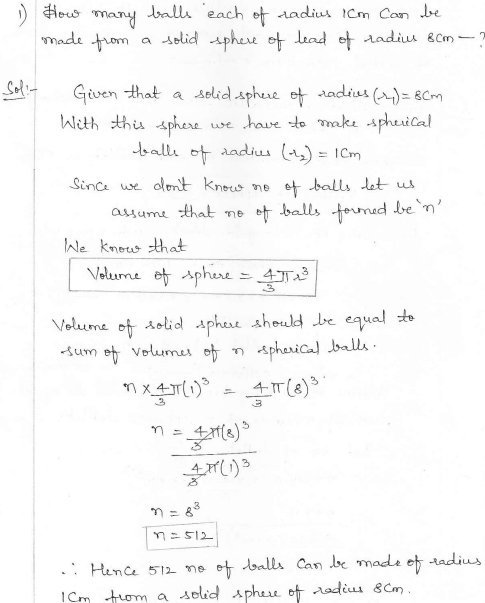 1) How many balls each of radius 1cm can be
made from a solid sphere of lead of radius 8cm —?
Sol:- Given that a solid sphere of radius (r₁) = 8cm
With this sphere we have to make spherical
balls of radius (r₂) = 1cm
Since we don't know no of balls let us
assume that no of balls formed be 'n'
We know that
Volume of sphere = 4/3 π r³
Volume of solid sphere should be equal to
sum of volumes of n spherical balls.
n × 4/3 π(1)³ = 4/3 π(8)³
n = 4/3 π(8)³
4/3 π(1)³
n = 8³
n = 512
∴ Hence 512 no of balls can be made of radius
1cm from a solid sphere of radius 8cm.